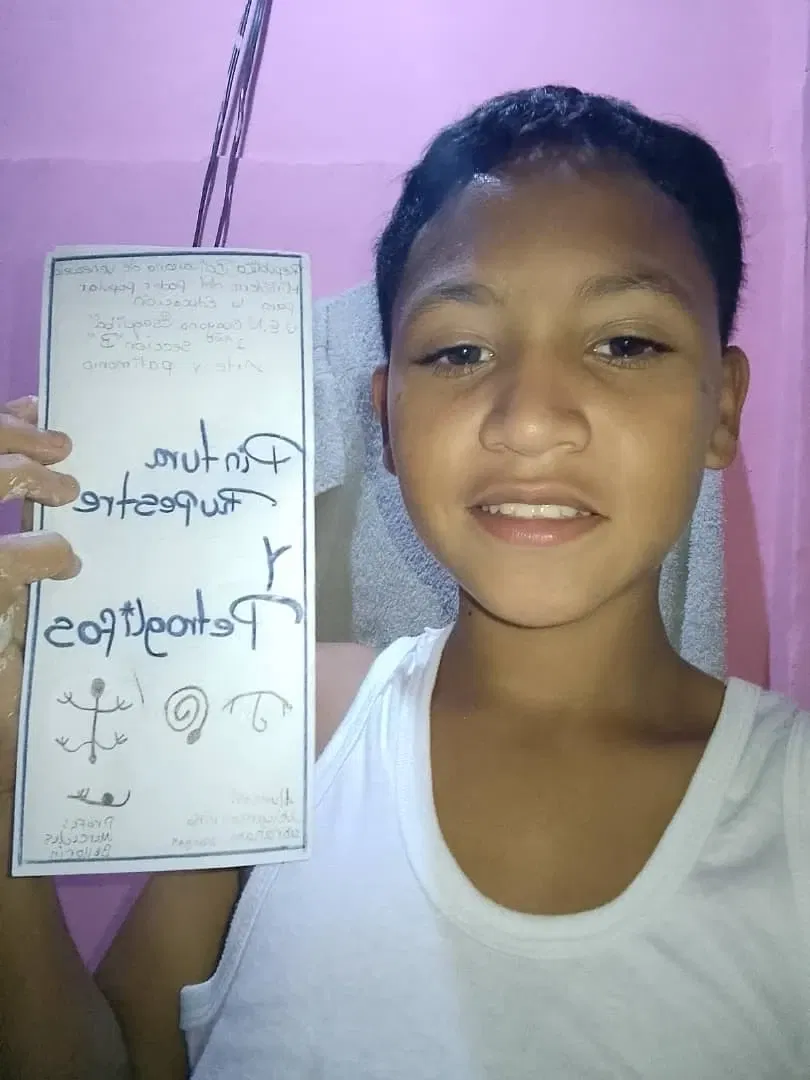 República Bolivariana de Venezuela
Ministerio del poder popular
para la Educación
U.E.N Guayana Esequiba"
1 año Sección "B"
Arte y patrimonio
Pintura
Rupestre
Y
Petroglifos
Profes:
Mercedes